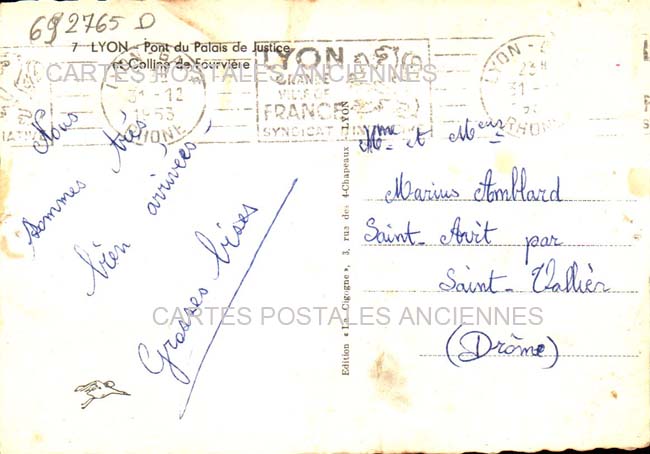 692765 D
7 LYON - Pont du Palais de Justice
et Colline de Fourvière
CARTES POSTALES ANCIENNES
LYON
31-12
1953
RHONE
LYON
GRANDE
VILLE DE
FRANCE
SYNDICAT D'IN
LYON
31
RHONE
Nous
sommes très
bien arrivées.
Grosses bises
Edition « La Cigogne », 3, rue des 4-Chapeaux LYON
Mme et Meur
Marius Amblard
Saint-Avit par
Saint-Vallier
(Drôme)
CARTES POSTALES ANCIENNES